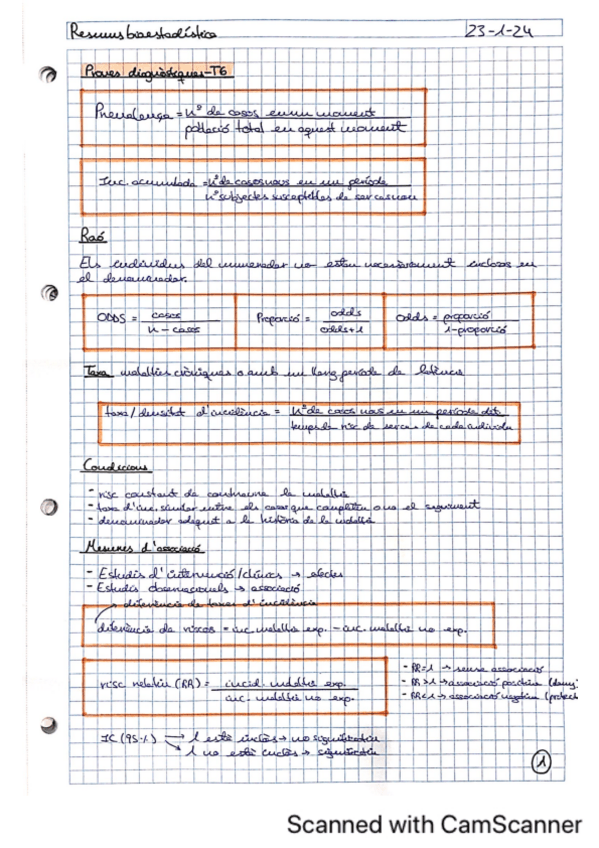 Resums bioestadística 23-1-24
Proves diagnòstiques-T6
Prevalença = nº de casos en un moment
població total en aquest moment
Inc. acumulada = nº de casos nous en un període
nº subjectes susceptibles de ser cas nou
Raó
Els individus del numerador no estan necessàriament inclosos en
el denominador.
ODDS = casos
n - casos
Proporció = odds
odds+1
Odds = proporció
1-proporció
Taxa malalties cròniques o amb un llarg període de latència
taxa/densitat d'incidència = nº de casos nous en un període
temps de risc de de cada individu
Condicions
- risc constant de contraure la malaltia
- taxa d'inc. similar entre els casos que completin o no el seguiment
- denominador adequat a la història de la malaltia
Mesures d'associació
- Estudis d'intervenció/clínics → efectes
- Estudis observacionals → associació
diferència de taxes d'incidència
diferència de riscos = inc malaltia exp. - inc. malaltia no exp.
risc relatiu (RR) = incid. malaltia exp.
inc. malaltia no exp.
- RR=1 → sense associació
- RR>1 → associació positiva (dany)
- RR<1 → associació negativa (protecc
IC (95%) → 1 està inclòs → no significatiu
→ 1 no està inclòs → significatiu
1
Scanned with CamScanner